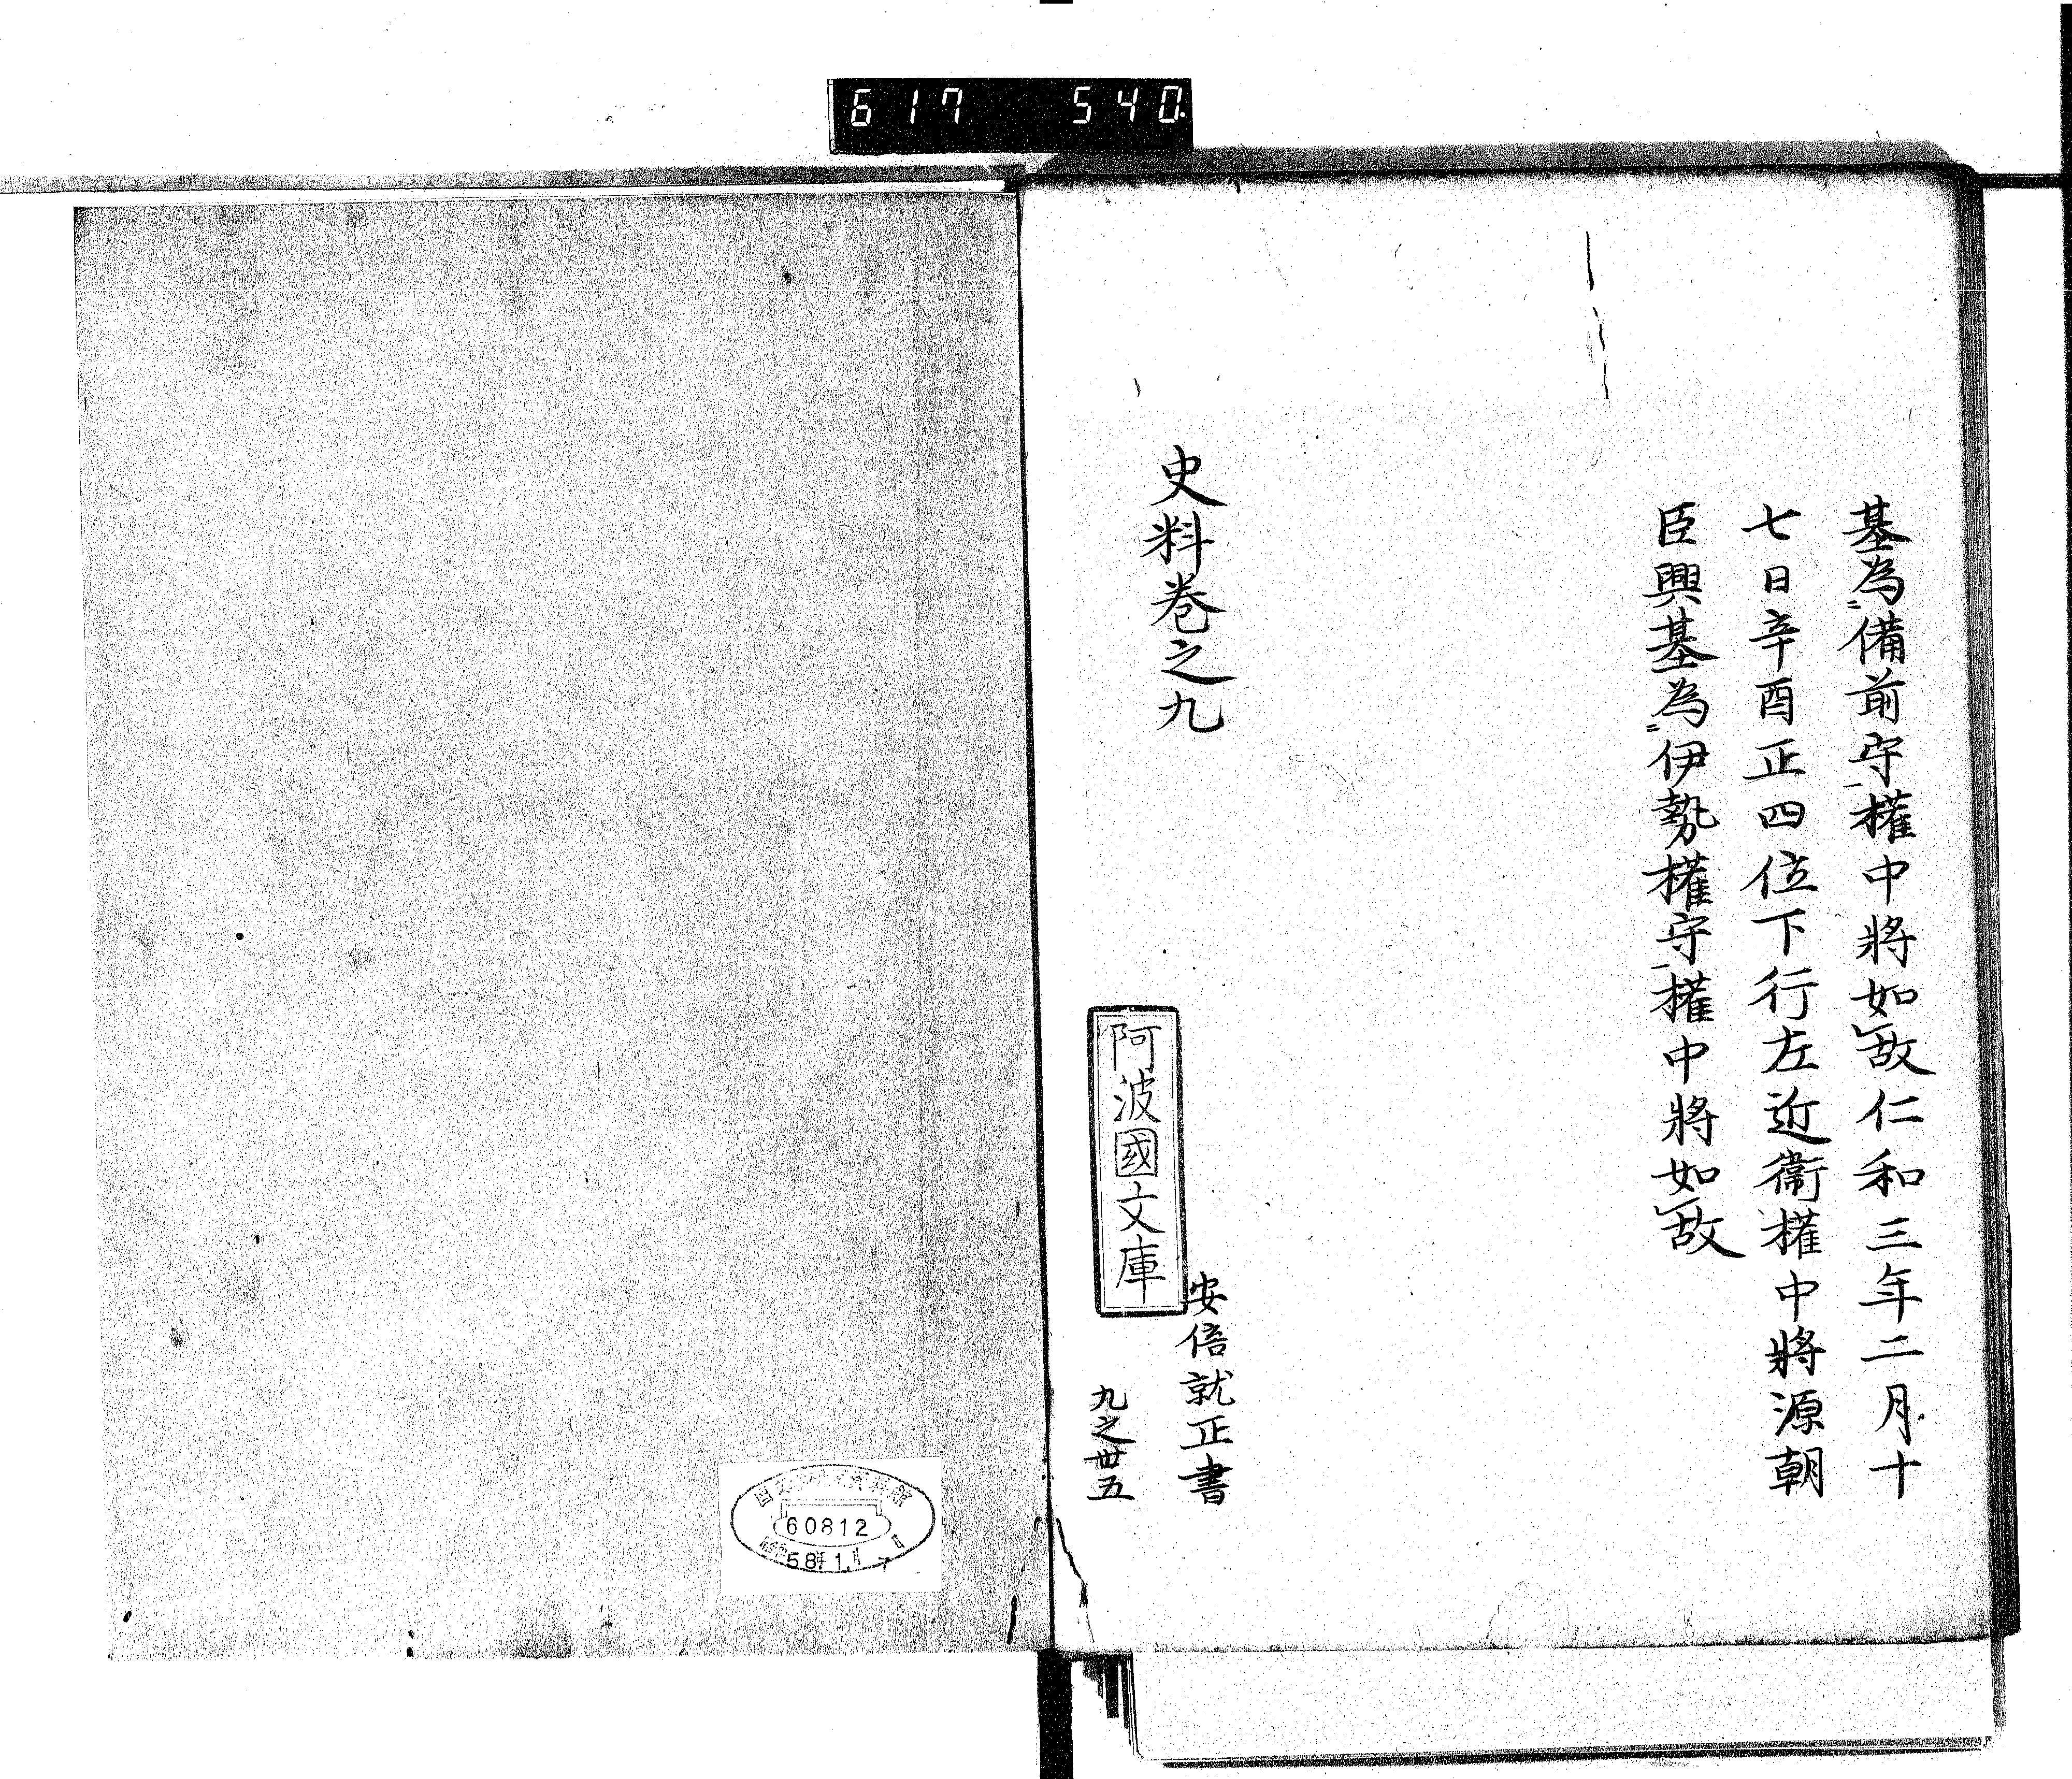 617 540
基為備前守權中將如故仁和三年二月十
七日辛酉正四位下行左近衞權中將源朝
臣興基為伊勢權守權中將如故
史料卷之九
安倍就正書
阿波國文庫
九之卅五
60812